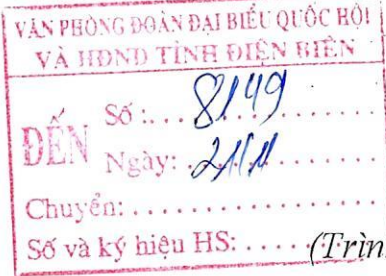 VĂN PHÒNG ĐOÀN ĐẠI BIỂU QUỐC HỘI
VÀ HĐND TỈNH ĐIỆN BIÊN
ĐẾN
Số :....8149..........
Ngày: 21/11..........
Chuyển: ..................
Số và ký hiệu HS: ..... (Trìn